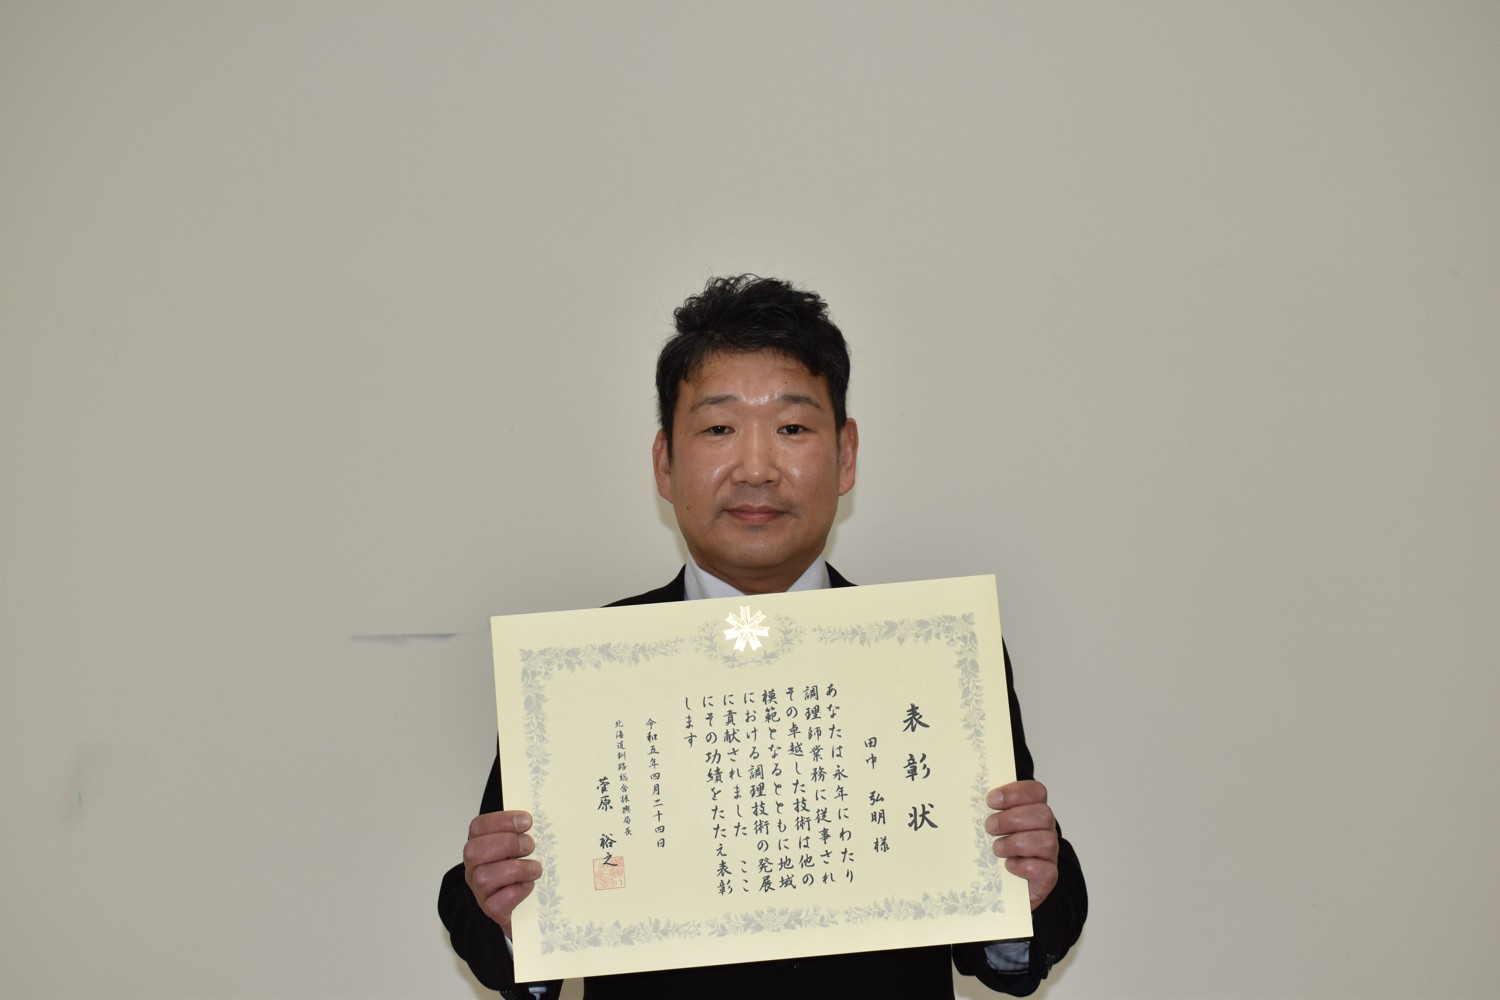 表彰状
田中 弘明 様
あなたは永年にわたり
調理師業務に従事され
その卓越した技術は他の
模範となるとともに地域
における調理技術の発展
に貢献されました ここ
にその功績をたたえ表彰
します
令和五年四月二十四日
北海道釧路総合振興局長
菅原 裕之